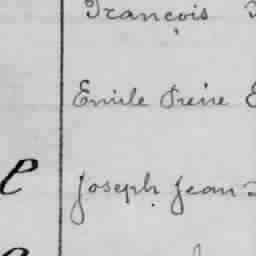 François
Emile Irène
e
Joseph Jean